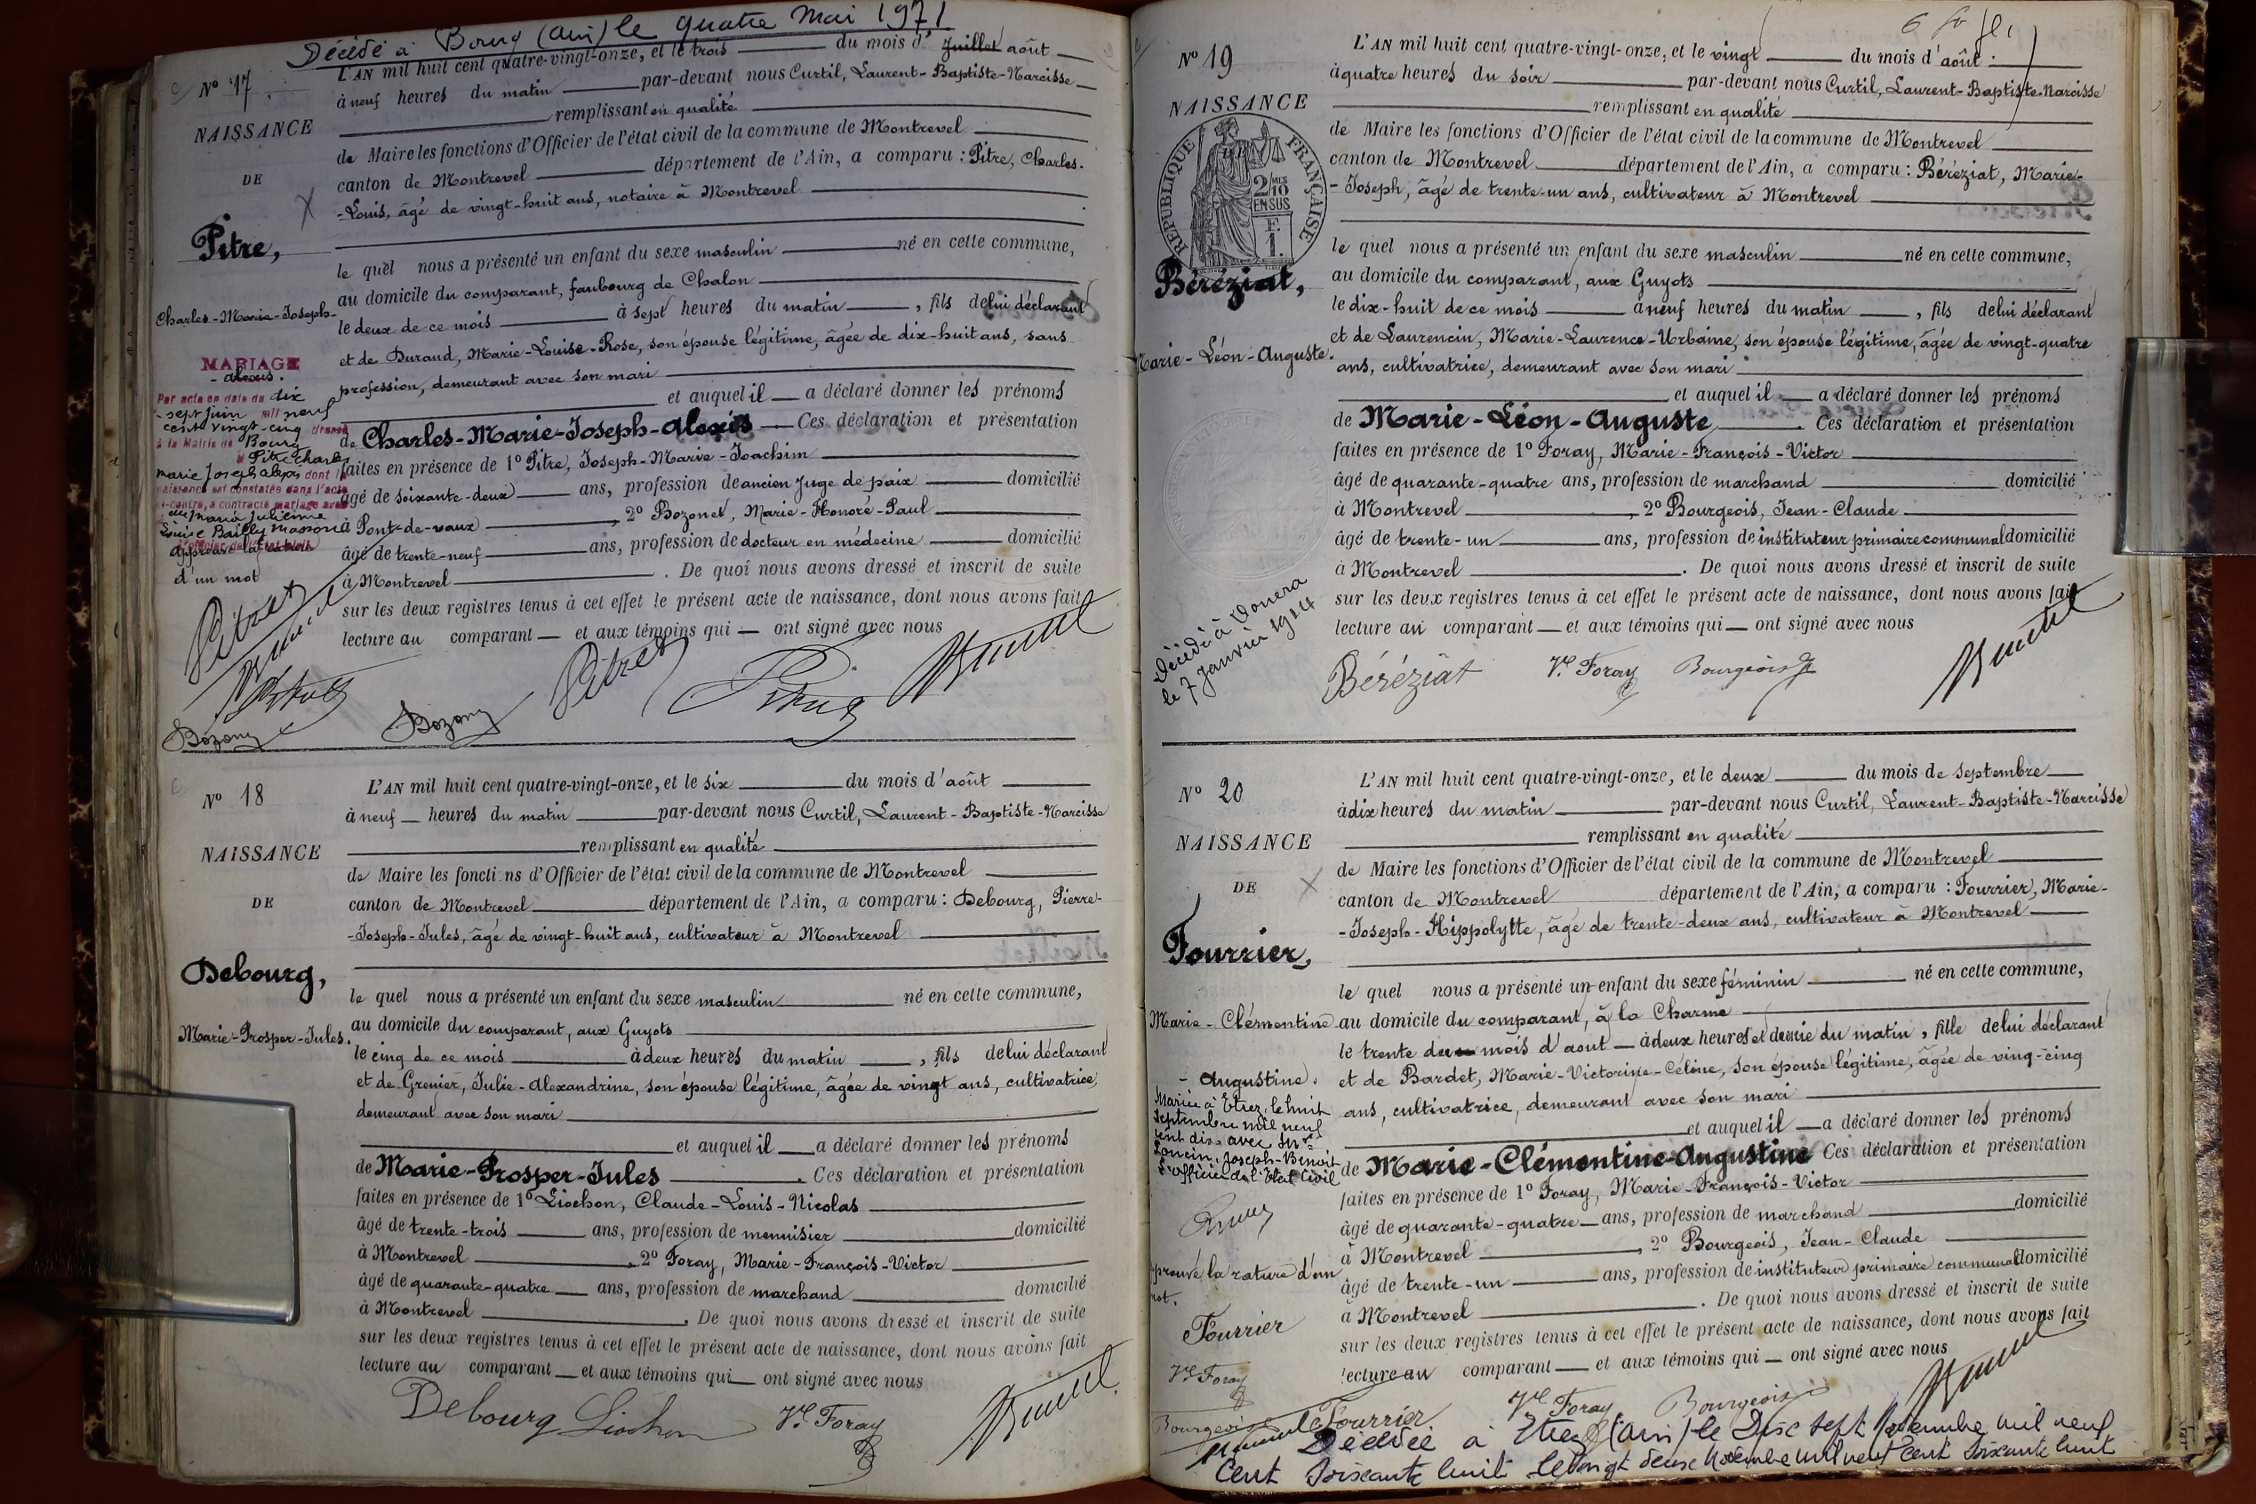 Décédé à Bourg (Ain) le quatre Mai 1971
N° 17
NAISSANCE
DE
Pitre,
Charles-Marie-Joseph-
-Alexis.
MARIAGE
Par acte en date du dix
-sept juin mil neuf
cent vingt-cinq dressé
à la Mairie de Bourg
Pitre Charles
marie Joseph alexis dont la
naissance est constatée dans l'acte
ci-contre, a contracté mariage avec
Maria Julienne
Louise Bailly
d'un mot
L'AN mil huit cent quatre-vingt-onze, et le trois du mois d' Juillet août
à neuf heures du matin par-devant nous Curtil, Laurent-Baptiste-Narcisse
remplissant en qualité
de Maire les fonctions d'Officier de l'état civil de la commune de Montrevel
canton de Montrevel département de l'Ain, a comparu : Pitre, Charles-
-Louis, âgé de vingt-huit ans, notaire à Montrevel
le quel nous a présenté un enfant du sexe masculin né en cette commune,
au domicile du comparant, faubourg de Chalon
le deux de ce mois à sept heures du matin , fils de lui déclarant
et de Durand, Marie-Louise-Rose, son épouse légitime, âgée de dix-huit ans, sans
profession, demeurant avec son mari
et auquel il a déclaré donner les prénoms
de Charles-Marie-Joseph-Alexis Ces déclaration et présentation
faites en présence de 1° Pitre, Joseph-Marie-Joachim
âgé de soixante-deux ans, profession de ancien Juge de paix domicilié
à Pont-de-vaux , 2° Bozonet, Marie-Honoré-Paul
âgé de trente-neuf ans, profession de docteur en médecine domicilié
à Montrevel . De quoi nous avons dressé et inscrit de suite
sur les deux registres tenus à cet effet le présent acte de naissance, dont nous avons fait
lecture au comparant et aux témoins qui ont signé avec nous
N° 18
NAISSANCE
DE
Debourg,
Marie-Prosper-Jules.
L'AN mil huit cent quatre-vingt-onze, et le six du mois d'août
à neuf heures du matin par-devant nous Curtil, Laurent-Baptiste-Narcisse
remplissant en qualité
de Maire les fonctions d'Officier de l'état civil de la commune de Montrevel
canton de Montrevel département de l'Ain, a comparu : Debourg, Pierre-
-Joseph-Jules, âgé de vingt-huit ans, cultivateur à Montrevel
le quel nous a présenté un enfant du sexe masculin né en cette commune,
au domicile du comparant, aux Guyots
le cinq de ce mois à deux heures du matin , fils de lui déclarant
et de Grenier, Julie-Alexandrine, son épouse légitime, âgée de vingt ans, cultivatrice,
demeurant avec son mari
et auquel il a déclaré donner les prénoms
de Marie-Prosper-Jules . Ces déclaration et présentation
faites en présence de 1° Liochon, Claude-Louis-Nicolas
âgé de trente-trois ans, profession de menuisier domicilié
à Montrevel , 2° Foray, Marie-François-Victor
âgé de quarante-quatre ans, profession de marchand domicilié
à Montrevel . De quoi nous avons dressé et inscrit de suite
sur les deux registres tenus à cet effet le présent acte de naissance, dont nous avons fait
lecture au comparant et aux témoins qui ont signé avec nous
Debourg Liochon Vr Foray
N° 19
NAISSANCE
RÉPUBLIQUE FRANÇAISE
2/10 EN SUS
Béréziat,
Marie-Léon-Auguste.
Décédé à Douera
le 7 Janvier 1924
L'AN mil huit cent quatre-vingt-onze, et le vingt du mois d'août
à quatre heures du soir par-devant nous Curtil, Laurent-Baptiste-Narcisse
remplissant en qualité
de Maire les fonctions d'Officier de l'état civil de la commune de Montrevel
canton de Montrevel département de l'Ain, a comparu : Béréziat, Marie-
-Joseph, âgé de trente-un ans, cultivateur à Montrevel
le quel nous a présenté un enfant du sexe masculin né en cette commune,
au domicile du comparant, aux Guyots
le dix-huit de ce mois à neuf heures du matin , fils de lui déclarant
et de Laurencin, Marie-Laurence-Urbaine, son épouse légitime, âgée de vingt-quatre
ans, cultivatrice, demeurant avec son mari
et auquel il a déclaré donner les prénoms
de Marie-Léon-Auguste . Ces déclaration et présentation
faites en présence de 1° Foray, Marie-François-Victor
âgé de quarante-quatre ans, profession de marchand domicilié
à Montrevel , 2° Bourgeois, Jean-Claude
âgé de trente-un ans, profession de instituteur primaire communal domicilié
à Montrevel . De quoi nous avons dressé et inscrit de suite
sur les deux registres tenus à cet effet le présent acte de naissance, dont nous avons fait
lecture au comparant et aux témoins qui ont signé avec nous
Béréziat Vr Foray Bourgeois
N° 20
NAISSANCE
DE
Fourrier,
Marie-Clémentine-
-Augustine.
Mariée à Etrez, le huit
septembre mil neuf
cent dix avec Mr
Loncin, Joseph-Benoit
L'officier de l'Etat Civil
prouvé la rature d'un
mot.
Fourrier
Vr Foray
Bourgeois
L'AN mil huit cent quatre-vingt-onze, et le deux du mois de septembre
à dix heures du matin par-devant nous Curtil, Laurent-Baptiste-Narcisse
remplissant en qualité
de Maire les fonctions d'Officier de l'état civil de la commune de Montrevel
canton de Montrevel département de l'Ain, a comparu : Fourrier, Marie-
-Joseph-Hippolytte, âgé de trente-deux ans, cultivateur à Montrevel
le quel nous a présenté un enfant du sexe féminin né en cette commune,
au domicile du comparant, à la Charme
le trente du mois d'aout à deux heures et demie du matin , fille de lui déclarant
et de Bardet, Marie-Victorine-Céline, son épouse légitime, âgée de ving-cinq
ans, cultivatrice, demeurant avec son mari
et auquel il a déclaré donner les prénoms
de Marie-Clémentine-Augustine Ces déclaration et présentation
faites en présence de 1° Foray, Marie-François-Victor
âgé de quarante-quatre ans, profession de marchand domicilié
à Montrevel , 2° Bourgeois, Jean-Claude
âgé de trente-un ans, profession de instituteur primaire communal domicilié
à Montrevel . De quoi nous avons dressé et inscrit de suite
sur les deux registres tenus à cet effet le présent acte de naissance, dont nous avons fait
lecture au comparant et aux témoins qui ont signé avec nous
Fourrier Vr Foray Bourgeois
Décédée à Etrez (Ain) le Dix sept Novembre mil neuf
Cent Soixante huit le vingt deux Novembre mil neuf Cent Soixante huit